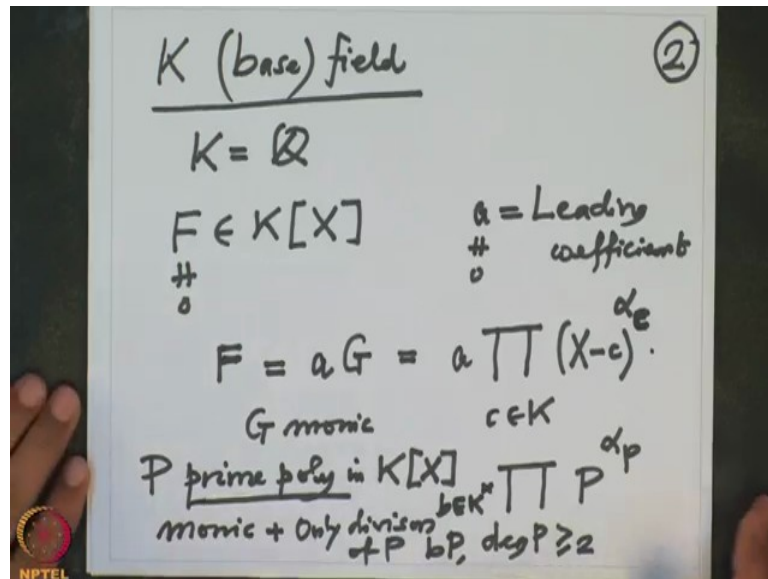 K (base) field
②
K = Q
F ∈ K[X]
≠
0
a = Leading
≠ coefficient
0
F = a G = a ∏ (X-c)^αc .
G monic c ∈ K
P prime poly in K[X] ∏ P^αp
monic + Only divisors b∈K^×
of P bP, deg P ≥ 2
NPTEL